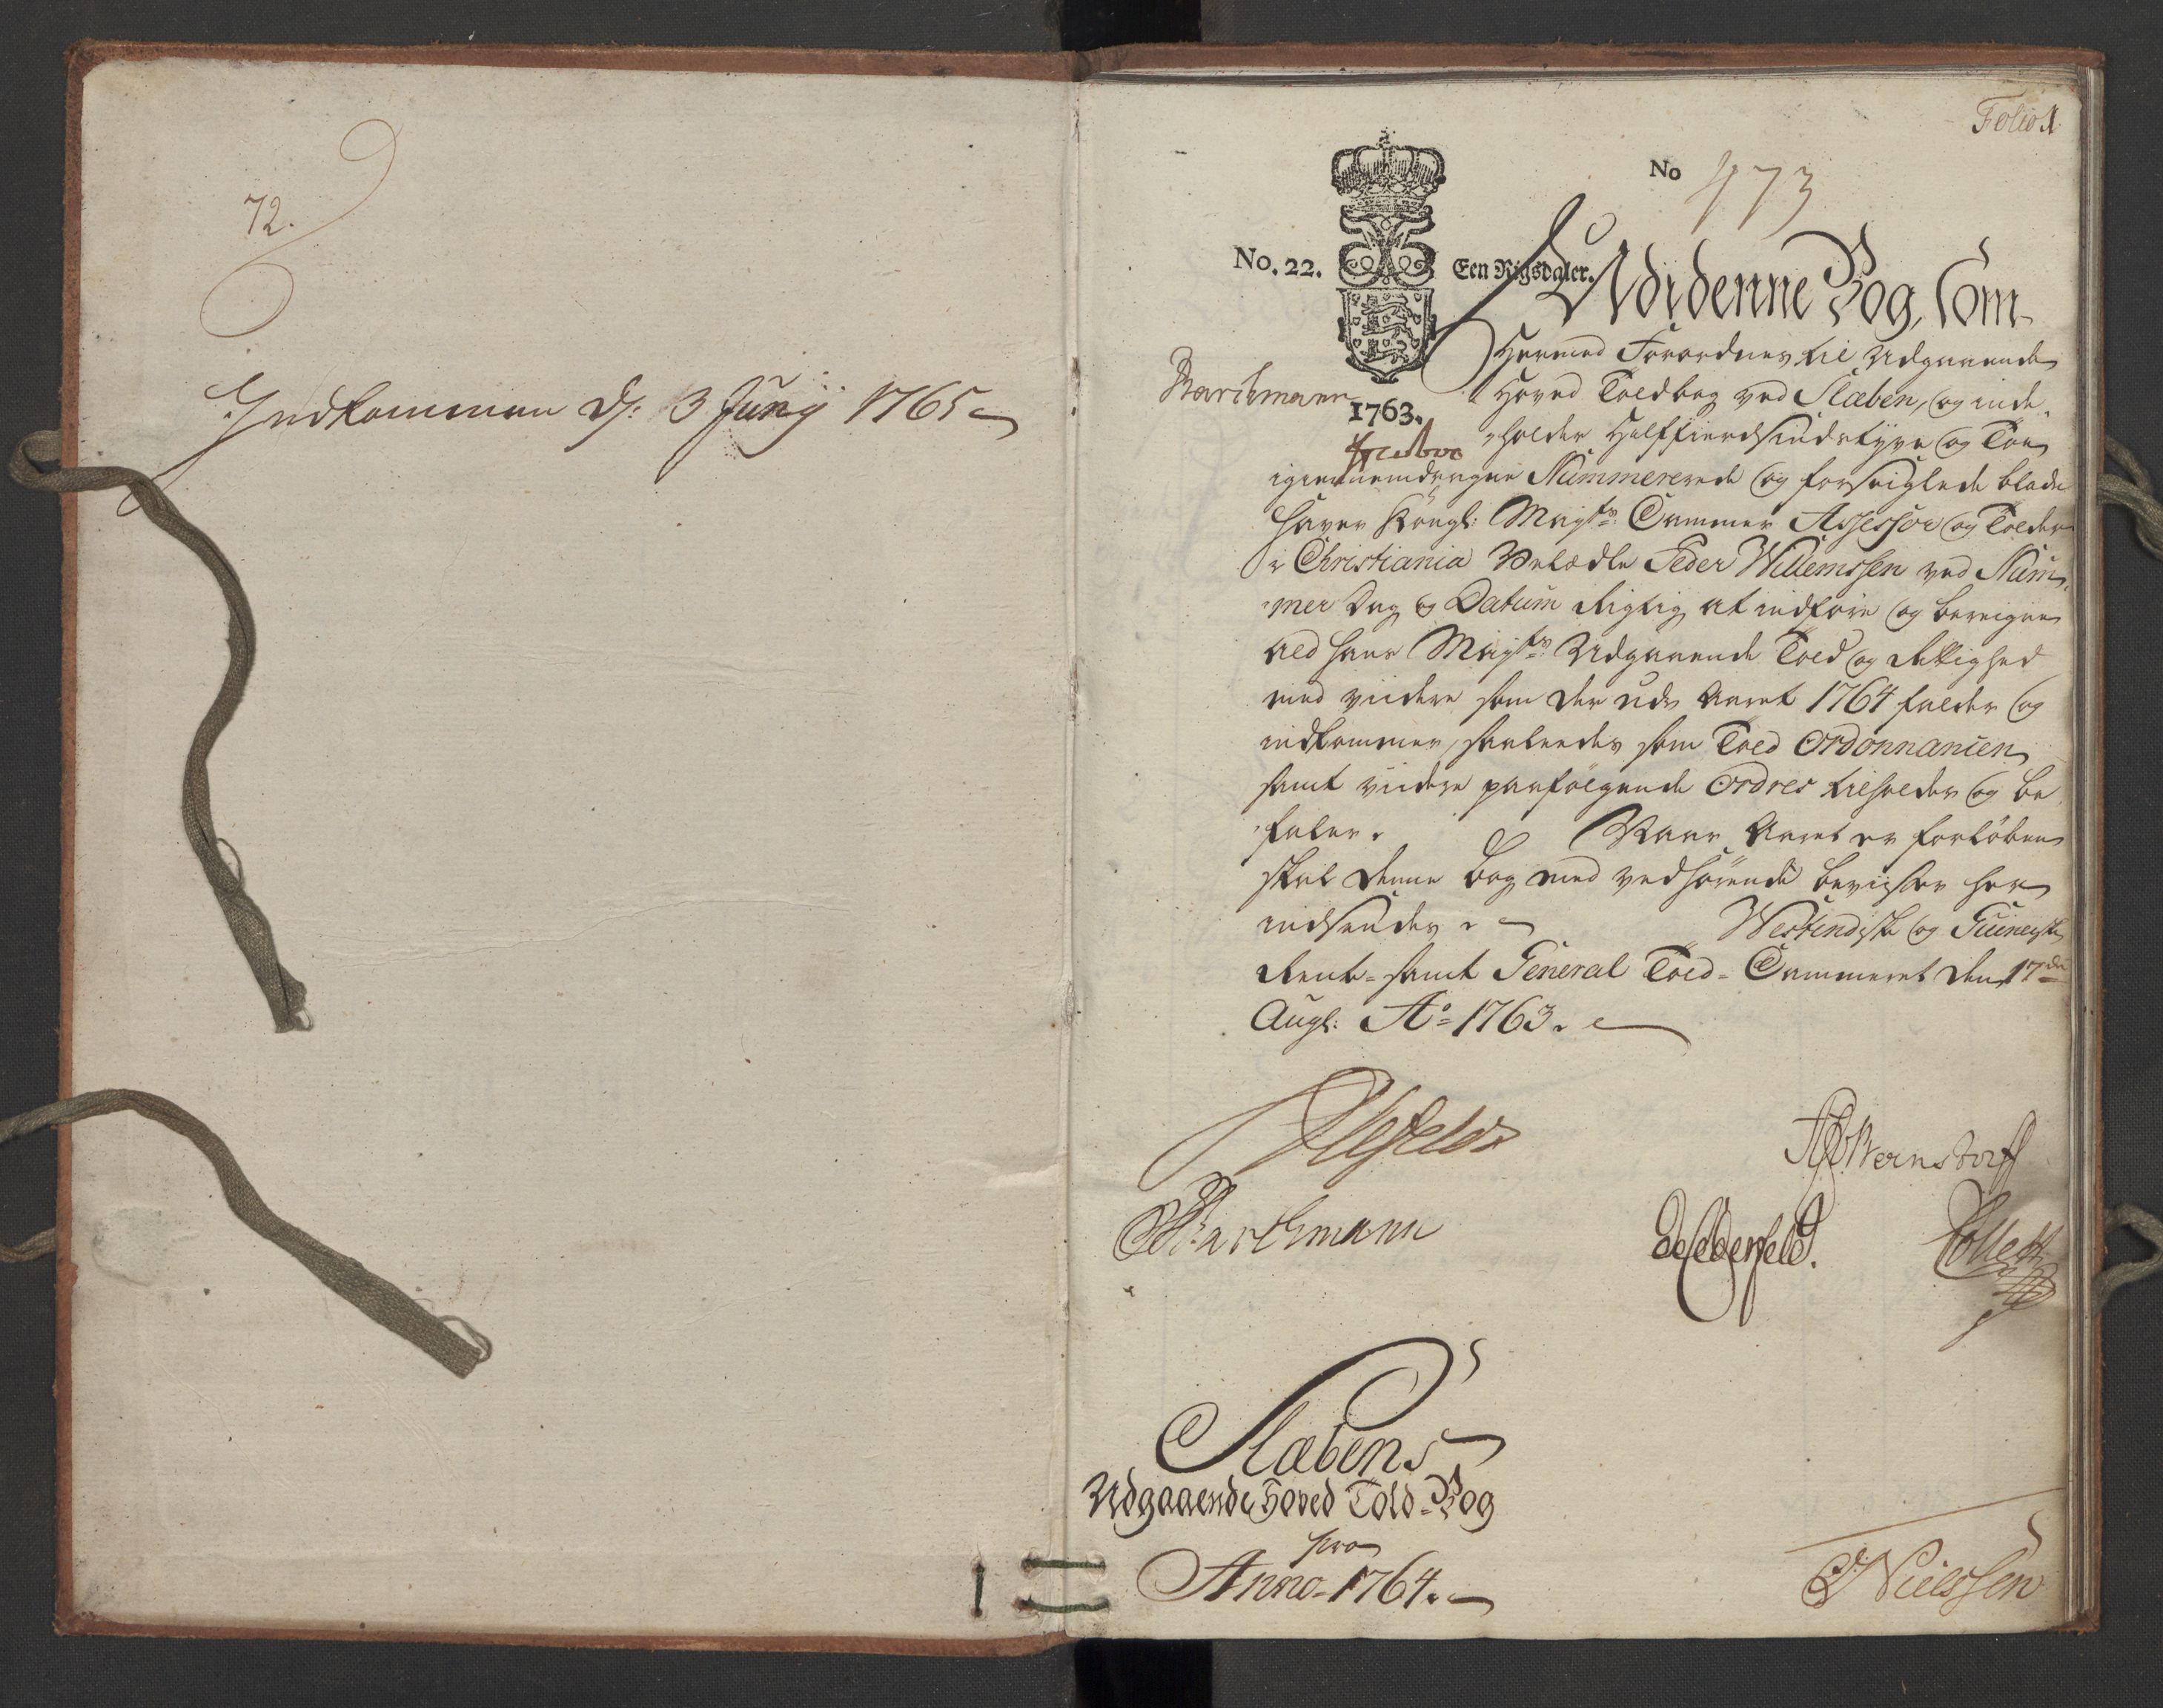 72.
Indkommen d: 3 Junij 1765
Folio 1
No 473
No. 22.
Een Rigsdaler.
Udi denne Bog, som
Hermed Forordnes til Udgaaende
Barchmann
Hoved Toldbog ved Slæben, og inde-
1763.
holder Halffierdsindstyve og Toe
igiennemdragne Nummererede og forseiglede blade
haver Kongl: Mayts: Cammer Assessor og Tolder
i Christiania Velædle Peder Willemssen ved Num-
mer Dag og Datum Rigtig at indføre og bereigne
ald hans Mayts: Udgaaende Told og Rettighed
med viidere som der udi Aaret 1764 falder og
indkommer, saaleedes som Told Ordonnancen
samt viidere paafølgende Ordres tilholder og be-
faler. Naar Aaret er forløben
skal denne Bog med vedhørende beviiser her
indsendes. Westindiske og Guineiske
Rente- samt General Told-Cammeret den 17de
Augs: Ao 1763.
Barchmann
Bernstorff
Collett
Slæbens
Udgaaende Hoved Told-Bog
pro
Anno 1764.
Nielssen